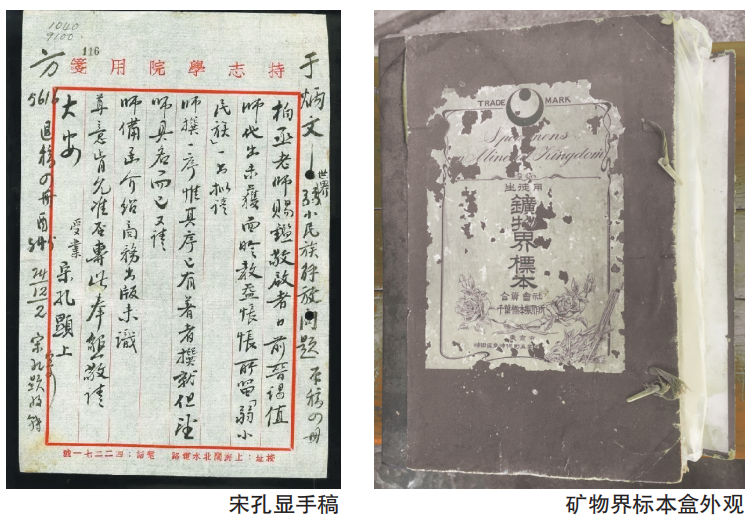 1040
9100.
116
持志學院用箋
于炳文—世界弱小民族解放問題 原稿四冊
柏丞老師賜鑑敬啟者日前晉謁值
師他出未獲面聆教益悵悵所 弱小
民族一書擬請
師撰一序惟其序已有著者撰就但
師具名而已又請
師備函介紹商務出版未識
尊意肯允准否專此奉懇敬請
大安
受業
宋孔顯上
方
5616 退稿四冊
24/12/2 宋孔顯
校址：上海閘北水電路 電話：四二二七一號
TRADE MARK
Specimens
in Mineral Kingdom
生徒用
鑛物界標本
合資會社
千葉標本製作所
東京市
宋孔显手稿
矿物界标本盒外观